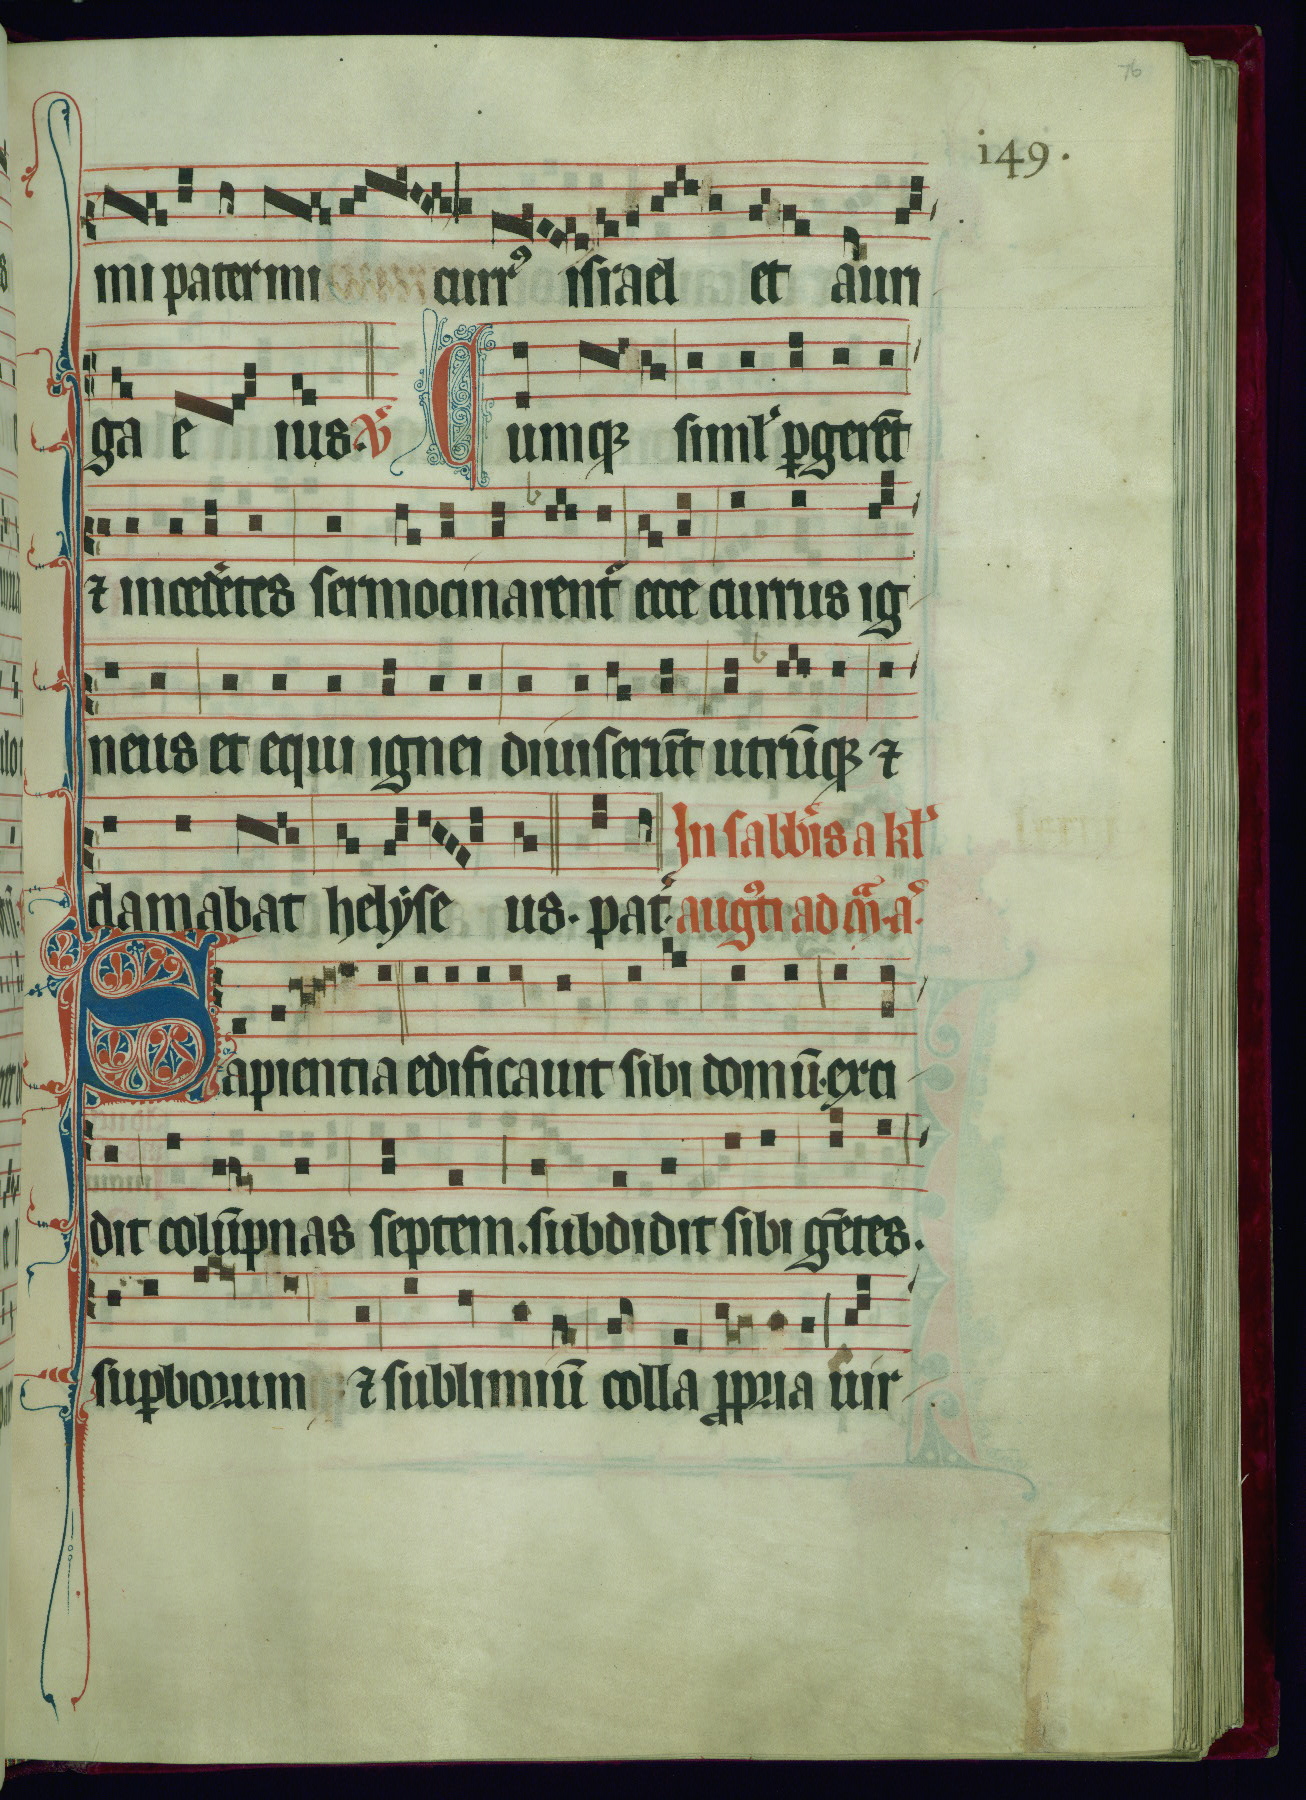 76
i49.
mi pater mi curr⁹ israel et auri
ga e ius. ꝟ Cumqꝫ siml' ꝑgerēt
⁊ incedētes sermocinarent᷑ ecce currus ig
neus et equi ignei diuiserūt utrūqꝫ ⁊
clamabat helyse us. pat᷑. In sabb̄is a kl'
augᷤti ad m̄. a᷑.
Sapientia edificauit sibi domū. exci
dit colūpnas septem. subdidit sibi gētes.
suꝑborum ⁊ sublimiū colla ꝓpria uir